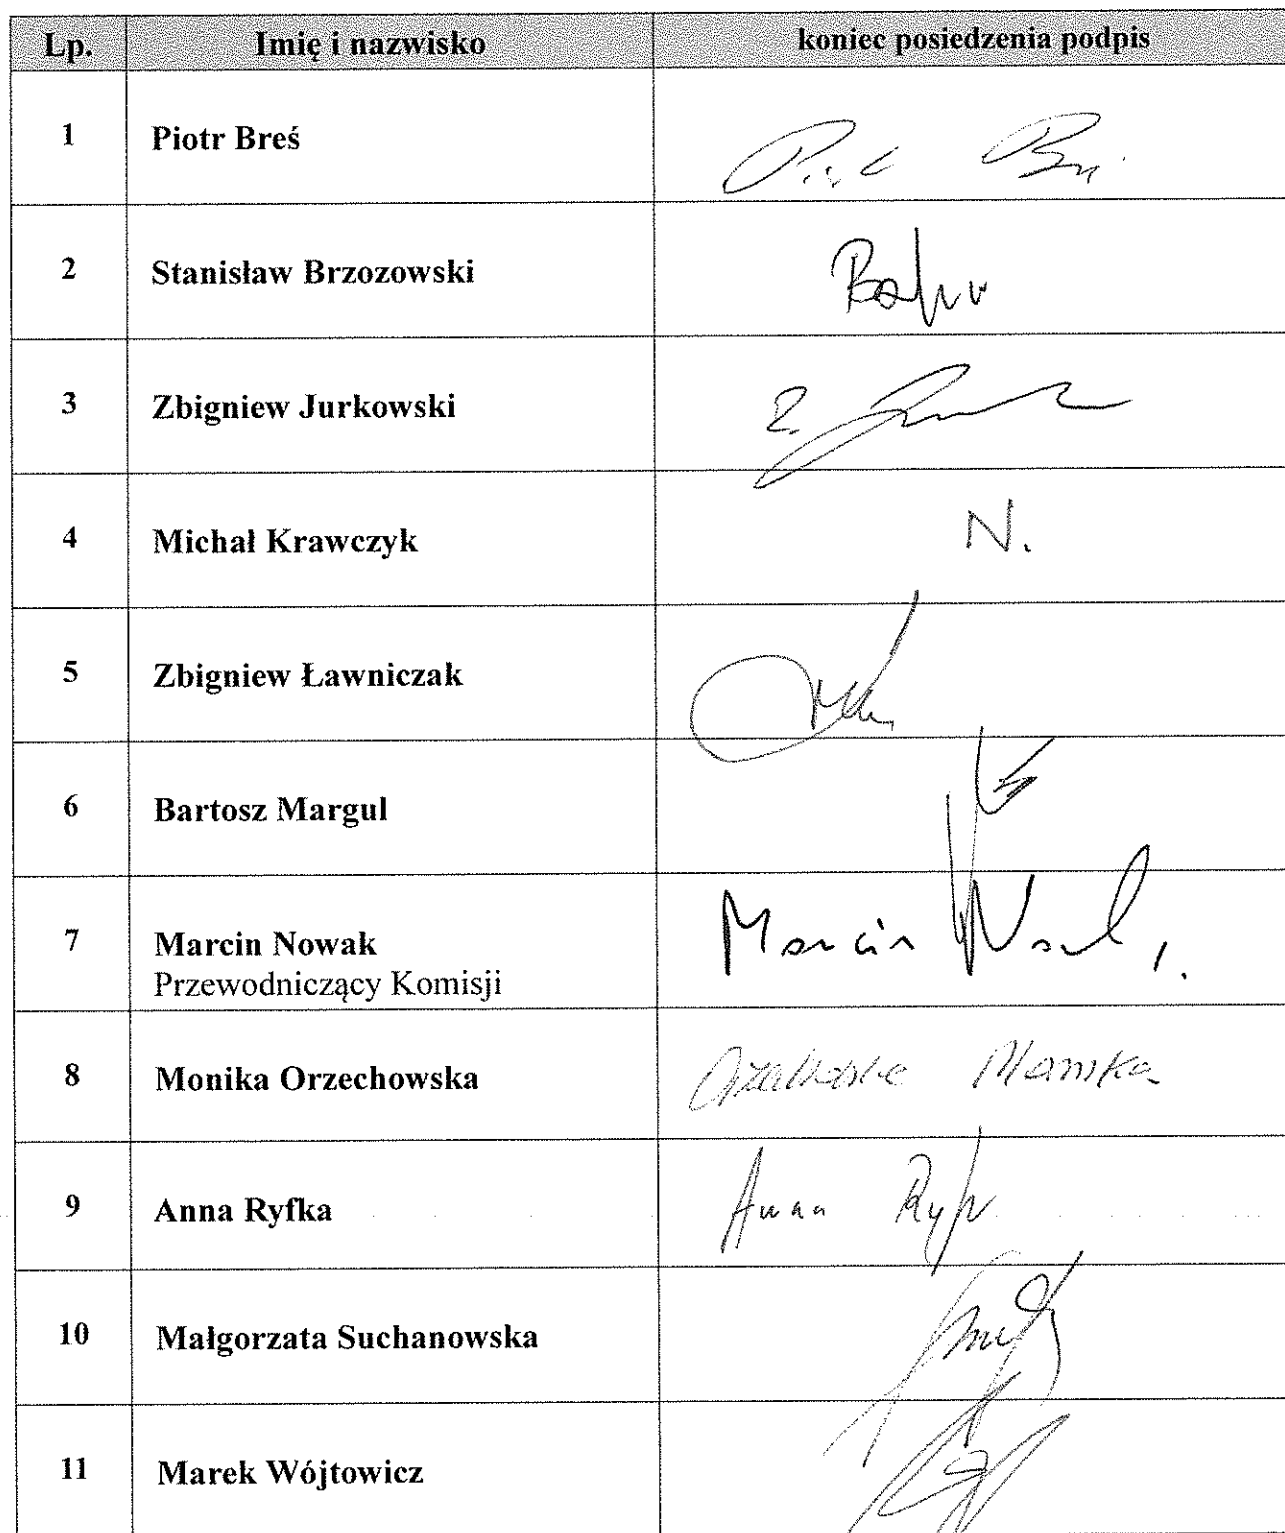 Lp. Imię i nazwisko koniec posiedzenia podpis
1 Piotr Breś
2 Stanisław Brzozowski
3 Zbigniew Jurkowski
4 Michał Krawczyk N.
5 Zbigniew Ławniczak
6 Bartosz Margul
7 Marcin Nowak Marcin Nowak
Przewodniczący Komisji
8 Monika Orzechowska Orzechowska Monika
9 Anna Ryfka Anna
10 Małgorzata Suchanowska
11 Marek Wójtowicz